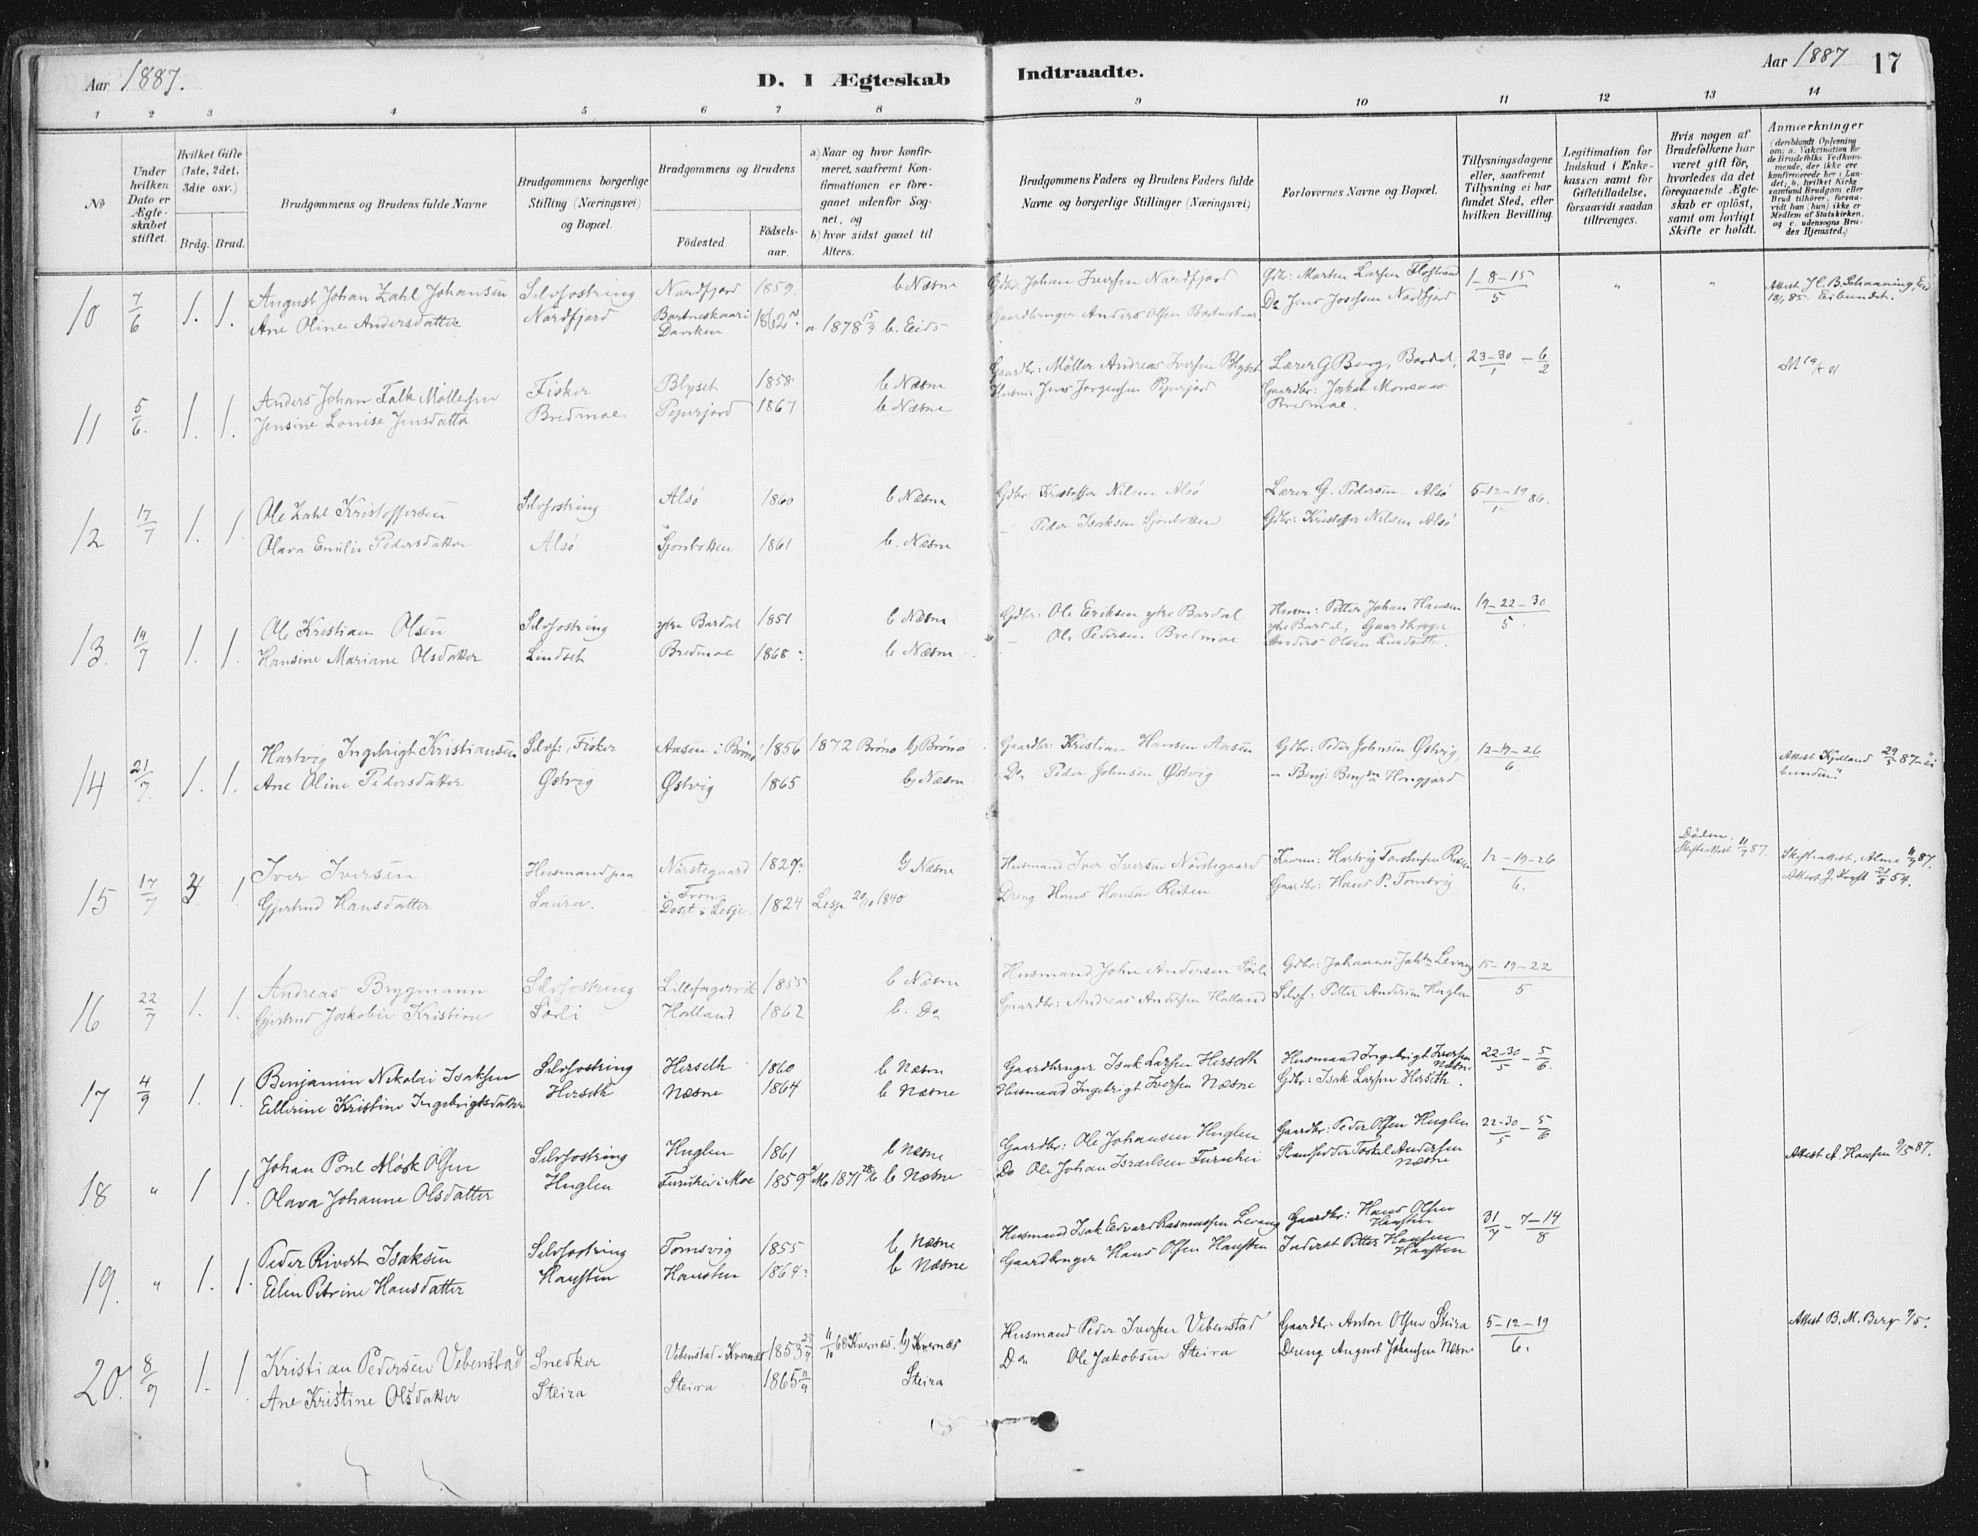 Aar 1887.
D. I Ægteskab Indtraadte.
Aar 1887 17
1 2 3 4 5 6 7 8 9 10 11 12 13 14
No
Under hvilken Dato er Ægteskabet stiftet.
Hvilket Gifte (1ste, 2det, 3die osv.)
Brdg. Brud.
Brudgommens og Brudens fulde Navne
Brudgommens borgerlige Stilling (Næringsvei) og Bopæl.
Brudgommens og Brudens
Födested. Födselsaar.
a) Naar og hvor konfirmeret, saafremt Konfirmationen er foregaaet udenfor Sognet, og
b) hvor sidst gaaet til Alters.
Brudgommens Faders og Brudens Faders fulde Navne og borgerlige Stillinger (Næringsvei)
Forlovernes Navne og Bopæl.
Tillysningsdagene eller, saafremt Tillysning ei har fundet Sted, efter hvilken Bevilling.
Legitimation for Indskud i Enkekassen samt for Giftetilladelse, forsaavidt saadan tiltrænges.
Hvis nogen af Brudefolkene har været gift før, hvorledes da det foregaaende Ægteskab er opløst, samt om lovligt Skifte er holdt.
Anmærkninger (deriblandt Oplysning om: a. Vakcination for de Brudefolks Vedkommende, der ikke ere konfirmerede her i Landet; b. hvilket Kirkesamfund Brudgom eller Brud tilhører, forsaavidt han (hun) ikke er Medlem af Statskirken, og c. udensogns Brudes Hjemsted.)
10 7/6 1. 1. August Johan Zahl Johansen Selvfostring Nordfjord 1859. b Næsne Gdbr: Johan Iversen Nordfjord Gdbr: Marten Larsen Flostrand 1-8-15/5 " "
Ane Oline Andersdatter Nordfjord 1862 a 1878 b. Eids Gaardbruger Anders Olsen Do Jens Josefsen Nordfjord
11 5/6. 1. 1. Anders Johan Falk Møllersen Fisker Blyset 1858 b Næsne Gaardbr: Møller Andreas Iversen Blyset Lærer G Berg, Bardal, 23-30/1 - 6/2
Jensine Lovise Jensdatter Bredmoe 1867 b Næsne Husm: Jens Jørgensen Gaardbr: Jakob Bredmoe.
12 17/7 1. 1. Ole Zahl Kristoffersen Selvfostring Alsø 1860 b Næsne Gdbr: Kristoffer Nilsen Alsø Lærer G. Pedersen - Alsø 5-12-19/12 86.
Olava Emilie Pedersdatter Alsø Sjonbotten 1861 b. Næsne - Peder Isaksen Sjonbotten Gdbr: Kristoffer Nilsen Alsø
13. 14/7 1. 1. Ole Kristian Olsen Selvfostring ytre Bardal 1851 b Næsne Gdbr: Ole Eriksen ytre Bardal Husm: Petter Johan Hansen ytre Bardal, Gaardbruger 19-22-30/5.
Hansine Mariane Olsdatter Lindset Bredmoe 1868 b Næsne - Ole Pedersen Bredmoe Anders Olsen Lindseth.
14 21/7. 1. 1. Hartvig Ingebrigt Kristiansen Selvf: Fisker Aasen i Brønø 1856 1872 Brønø b) Brønø Gaardbr: Kristian Hansen Aasen Gdbr: Peder Johnsen Østvig, 12-19-26/6.
Ane Oline Pedersdatter Østvig Østvig 1865 b) Næsne Do Peder Johnsen Østvig
15 17/7 1. Iver Iversen Husmand paa Nørstegaard 1829 b) Næsne Husmand Iver Iversen Nørstegaard 12-19-26/6. Døden. Skifteattest 11/7 87.
Gjertrud Hansdatter Saura. 1824 Lesje 20/10 1840 Dreng Hans Hansen Gaardbr: Hans P. Tomsvig
16 22/7 1. 1. Andreas Brygmann Selvfostring Lillefagervik 1855 b Næsne Husmand John Andersen Sørli Gdbr: Johannes Levang 15-19-22/5
Gjertrud Jakobie Kristine Sørli Holland 1862 b. Do Gaardbr: Andreas Andersen Holland Selvf: Petter Andersen Huglen
17 4/9 1. 1. Benjamin Nikolai Isaksen Selvfostring Herseth 1860 b Næsne Gaardbruger Isak Larsen Herseth Husmand Ingebrigt Iversen Næsne 22-30/5 - 5/6.
Ellerine Kristine Ingebrigtsdatter Herseth Næsne 1864 b Næsne Husmand Ingebrigt Iversen Næsne Gdbr: Isak Larsen Herseth.
18 " 1 1. Johan Pone Mosk Olsen Selvfostring Huglen 1861 b Næsne Gaardbr: Ole Johansen Huglen Gaardbr: Peder Olsen Huglen 22-30/5 - 5/6
Olava Johanne Olsdatter Huglen Furuhei i Moe 1859 Mo 1871 b Næsne Do Ole Johan Israelsen Furuhei Andersen Næsne Attest A. Hansen 9/5 87.
19. " 1. 1. Peder Rivert Isaksen Selvfostring Tomsvig 1855 b Næsne Husmand Isak Edvard Rasmussen Levang Gaardbr: Hans Olsen Haugsten 31/7 - 7-14/8
Elen Petrine Hansdatter Haugsten Haugsten 1864 b Næsne Gaardbruger Hans Olsen Haugsten Inderst Petter Hansen Haugsten
20. 8/9 1. 1. Kristian Pedersen Vebenstad Snedker Vebenstad i Kvernæs 1853 68 Kvernæs. b) Kvernæs Husmand Peder Iversen Vebenstad Gaardbr: Anton Olsen Steira 5-12-19/6. Attest B. M. Berg 9/5.
Ane Kristine Olsdatter Steira Steira 1865 Steira Do Ole Jakobsen Steira Dreng August Johansen Næsne